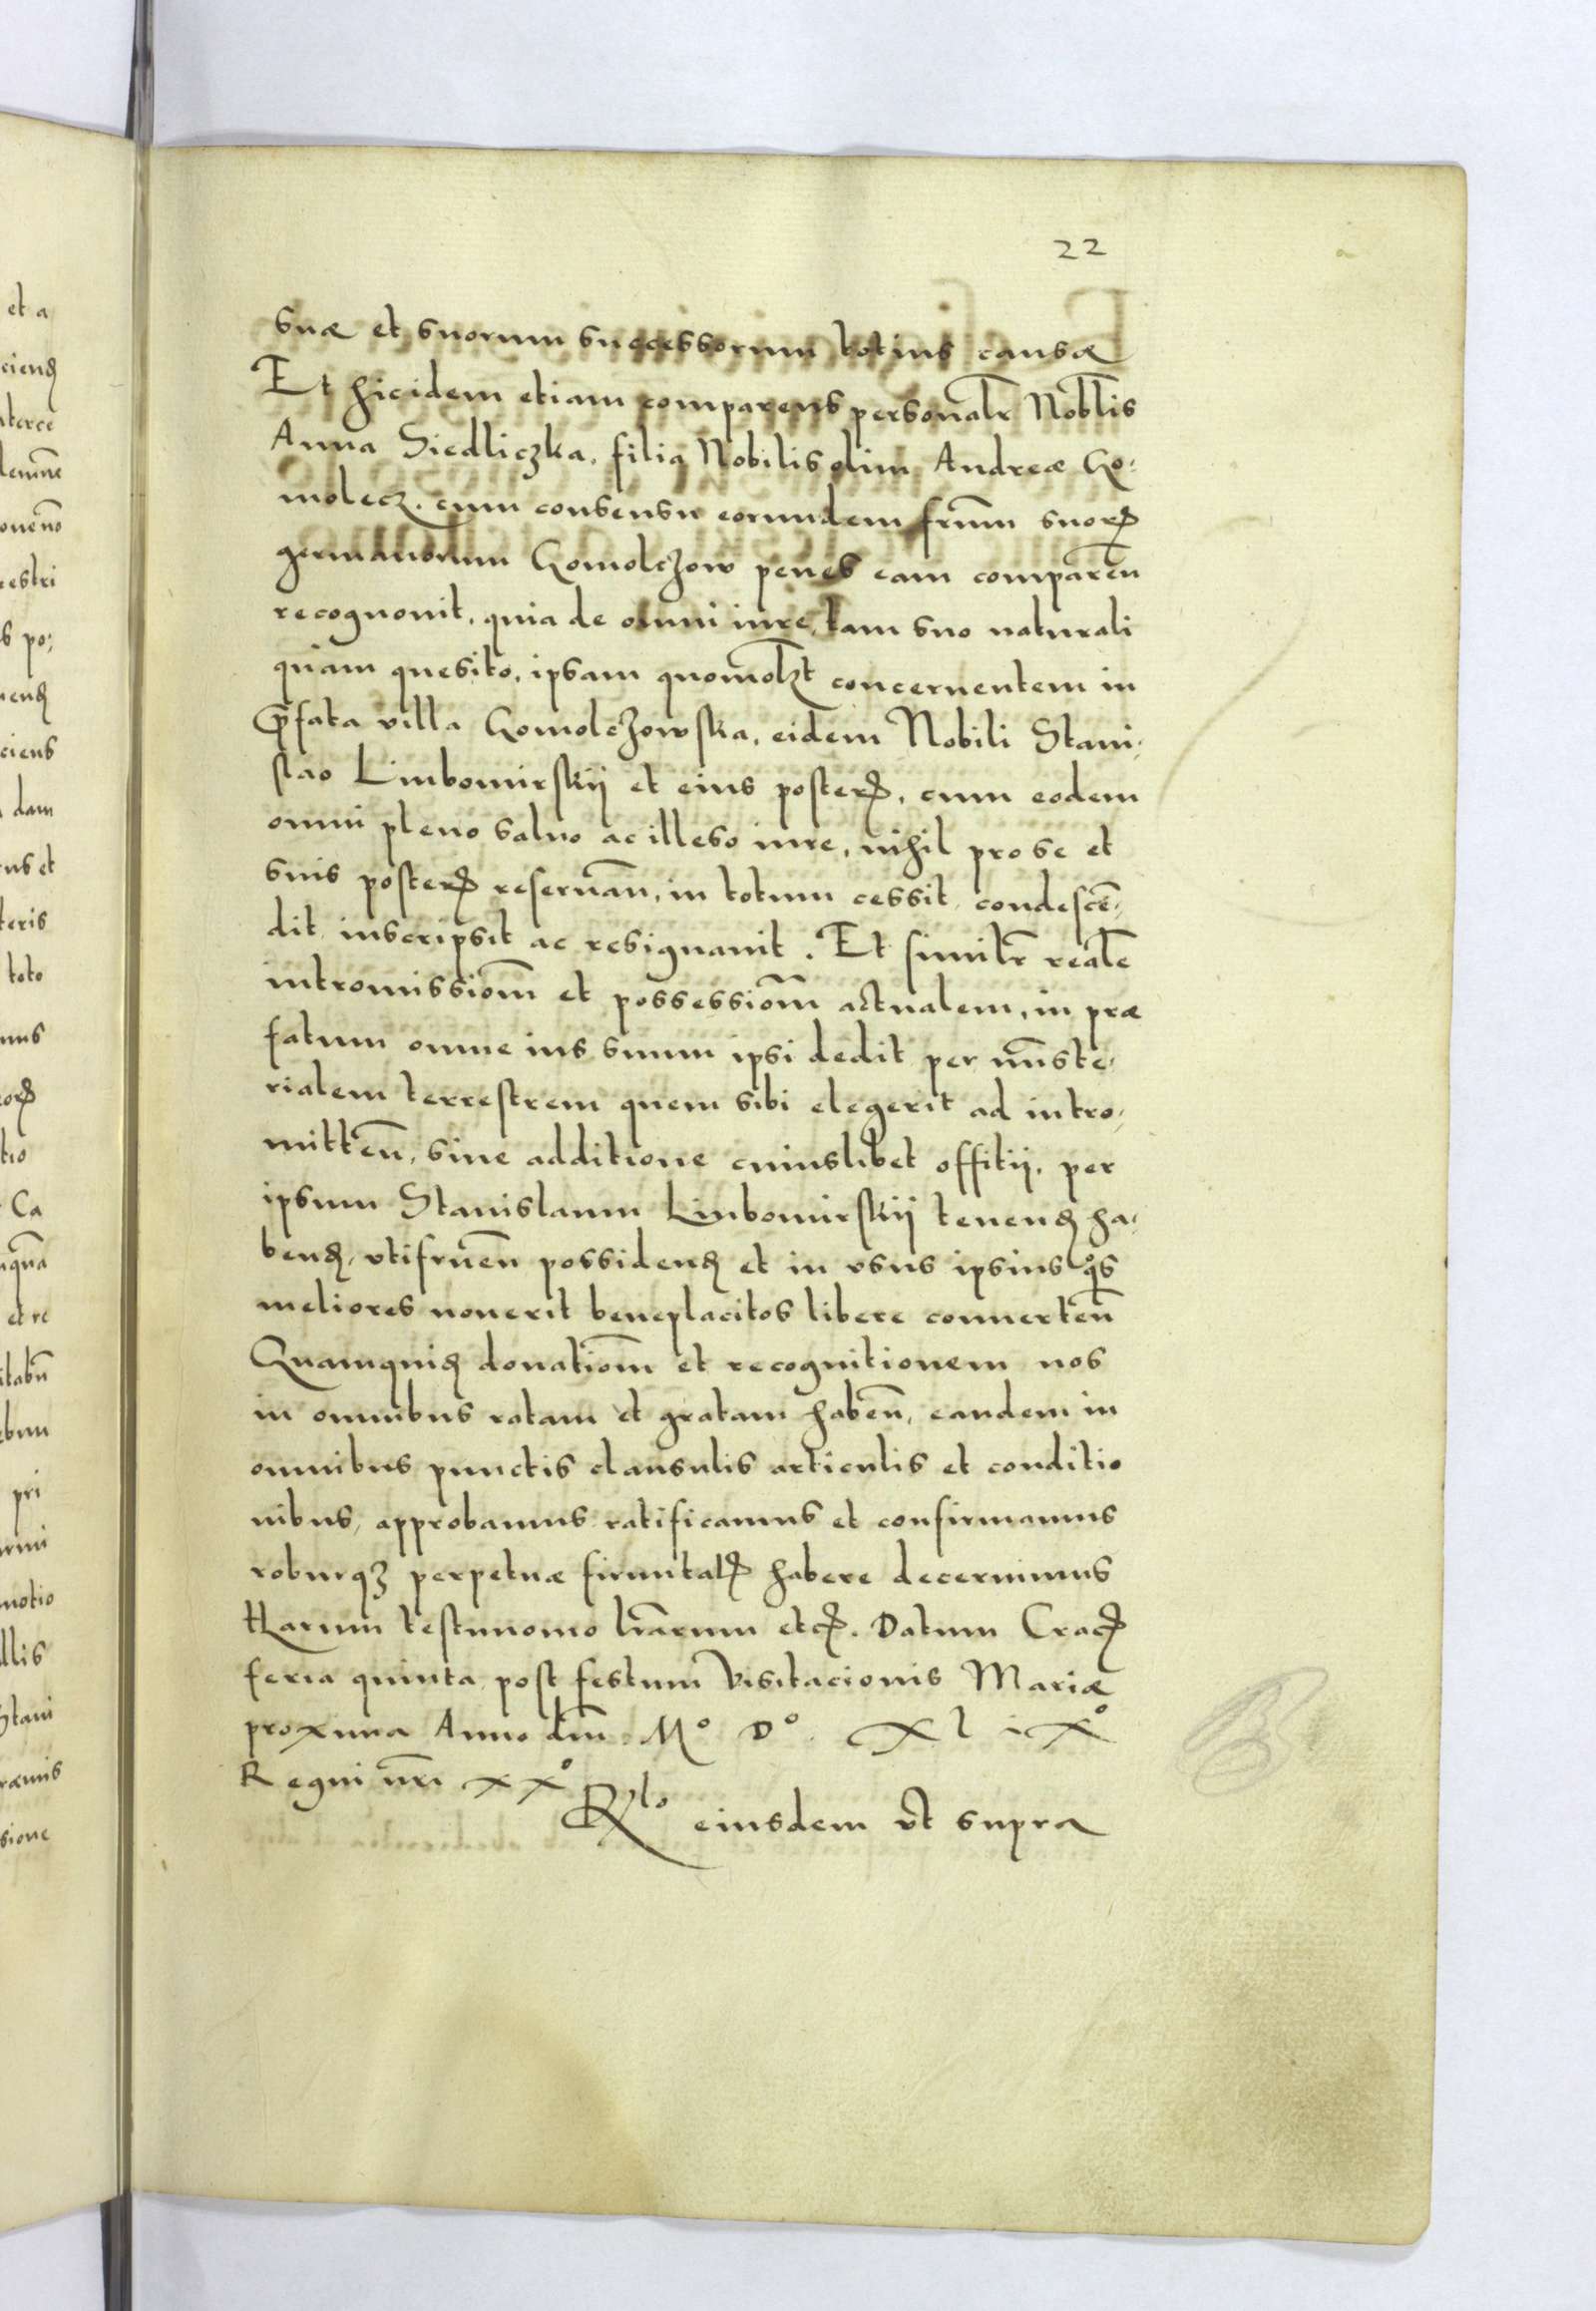 22
suæ et suorum successorum totius causæ
Et hic idem etiam comparens personalr Nobłis
Anna Siedliczka, filia Nobilis olim Andreæ Go-
molecz. cum consensu eorundem frūm suorꝝ
germanorum Gomolczow penes eam comparēn
recognovit, quia de omni iure, tam suo naturali
quam quesito, ipsam quomołꝫt concernentem in
Pfata villa Gomolczowska, eidem Nobili Stani-
slao Liubomirskij et eius posterꝭ, cum eodem
omni pleno salvo ac illeso iure, nihil pro se et
suis posterꝭ reservan̄, in totum cessit, condescē-
dit inscripsit ac resignavit. Et similr reale
intromissiom̄ et possessiom̄ actualem, in præ
fatum omne ius suum ipsi dedit per mn̄ste-
rialem terrestrem quem sibi elegerit ad intro-
mitten̄, sine additione cuiuslibet offitij, per
ipsum Stanislaum Liubomirskij tenenđ ha-
benđ, utifruen̄ possidenđ et in usus ipsius qͦs
meliores noverit beneplacitos libere converten̄
Quamquiđ donatiom̄ et recognitionem nos
in omnibus ratam et gratam haben̄, eandem in
omnibus punctis clausulis articulis et conditio
nibus, approbamus ratificamus et confirmamus
roburqꝫ perpetuæ firmitatꝭ habere decernimus
Harum testimonio lrārum etcꝭ. Datum Cracꝭ
feria quinta post festum Visitacionis Mariæ
proxima Anno dm̄. Mº Dº. Xl iXº
Regni nr̄i xxº
Rłº eiusdem ut supra